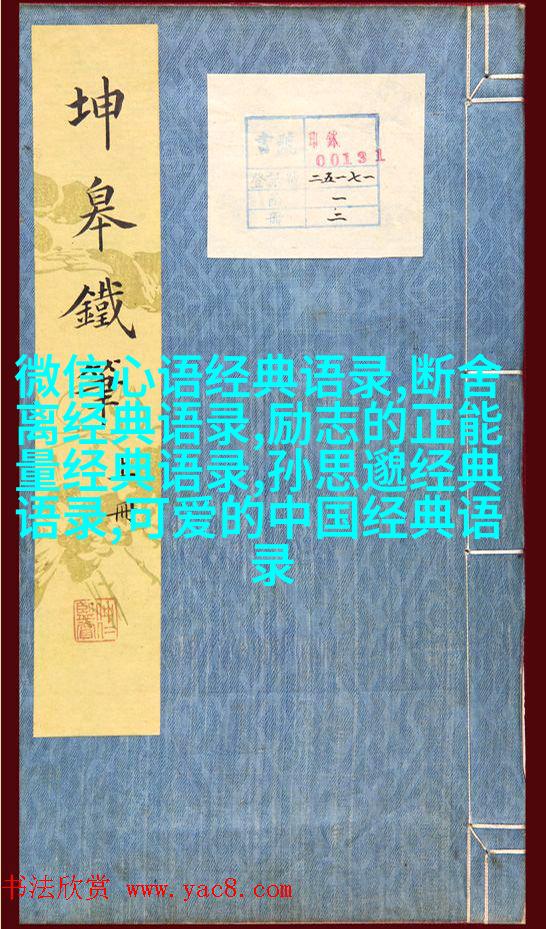 坤皋鐵筆
冊
書號 印鉥
00131
二五一七一
一
二
微信心语经典语录,断舍
离经典语录,励志的正能
量经典语录,孙思邈经典
语录,可爱的中国经典语
录
书法欣赏 www.yac8.com